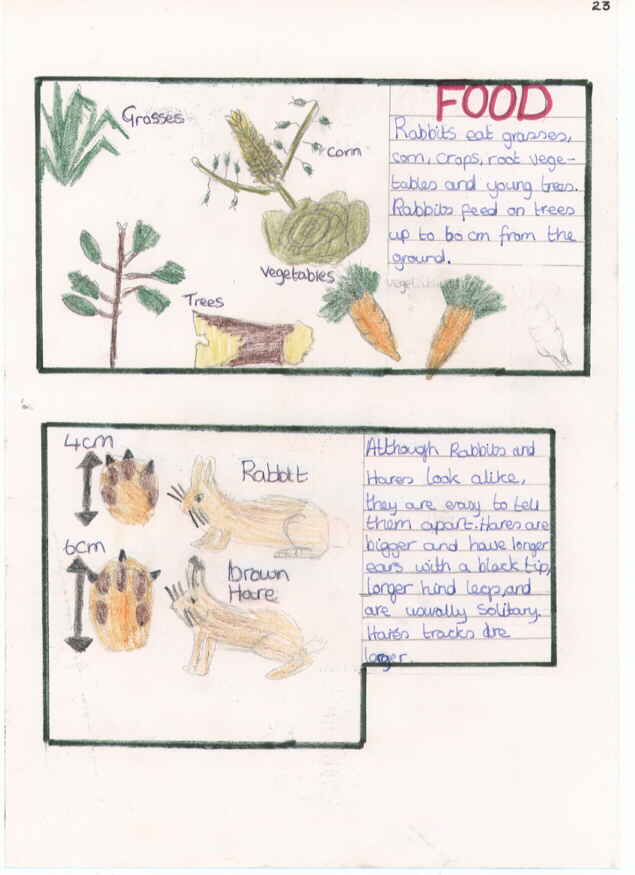 23
FOOD
Grasses
corn
Rabbits eat grasses,
corn, crops, root vege-
tables and young trees.
Rabbits feed on trees
up to 60cm from the
ground.
Vegetables
vegetables
Trees
4cm
Rabbit
6cm
brown
Hare
Although Rabbits and
Hares look alike,
they are easy to tell
them apart. Hares are
bigger and have longer
ears with a black tip,
longer hind legs, and
are usually Solitary.
Hares tracks are
larger.